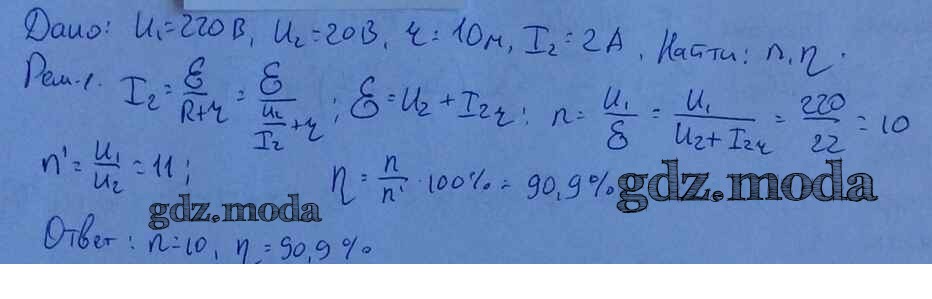 Дано: U₁=220В, U₂=20В, r=1Ом, I₂=2А. Найти: n, η.
Реш-е. I₂ = ℰ/(R+r) = ℰ/(U₂/I₂ + r); ℰ = U₂ + I₂r; n = U₁/ℰ = U₁/(U₂+I₂r) = 220/22 = 10
n' = U₁/U₂ = 11; η = n/n' · 100% = 90,9%
gdz.moda
gdz.moda
Ответ: n=10, η=90,9%